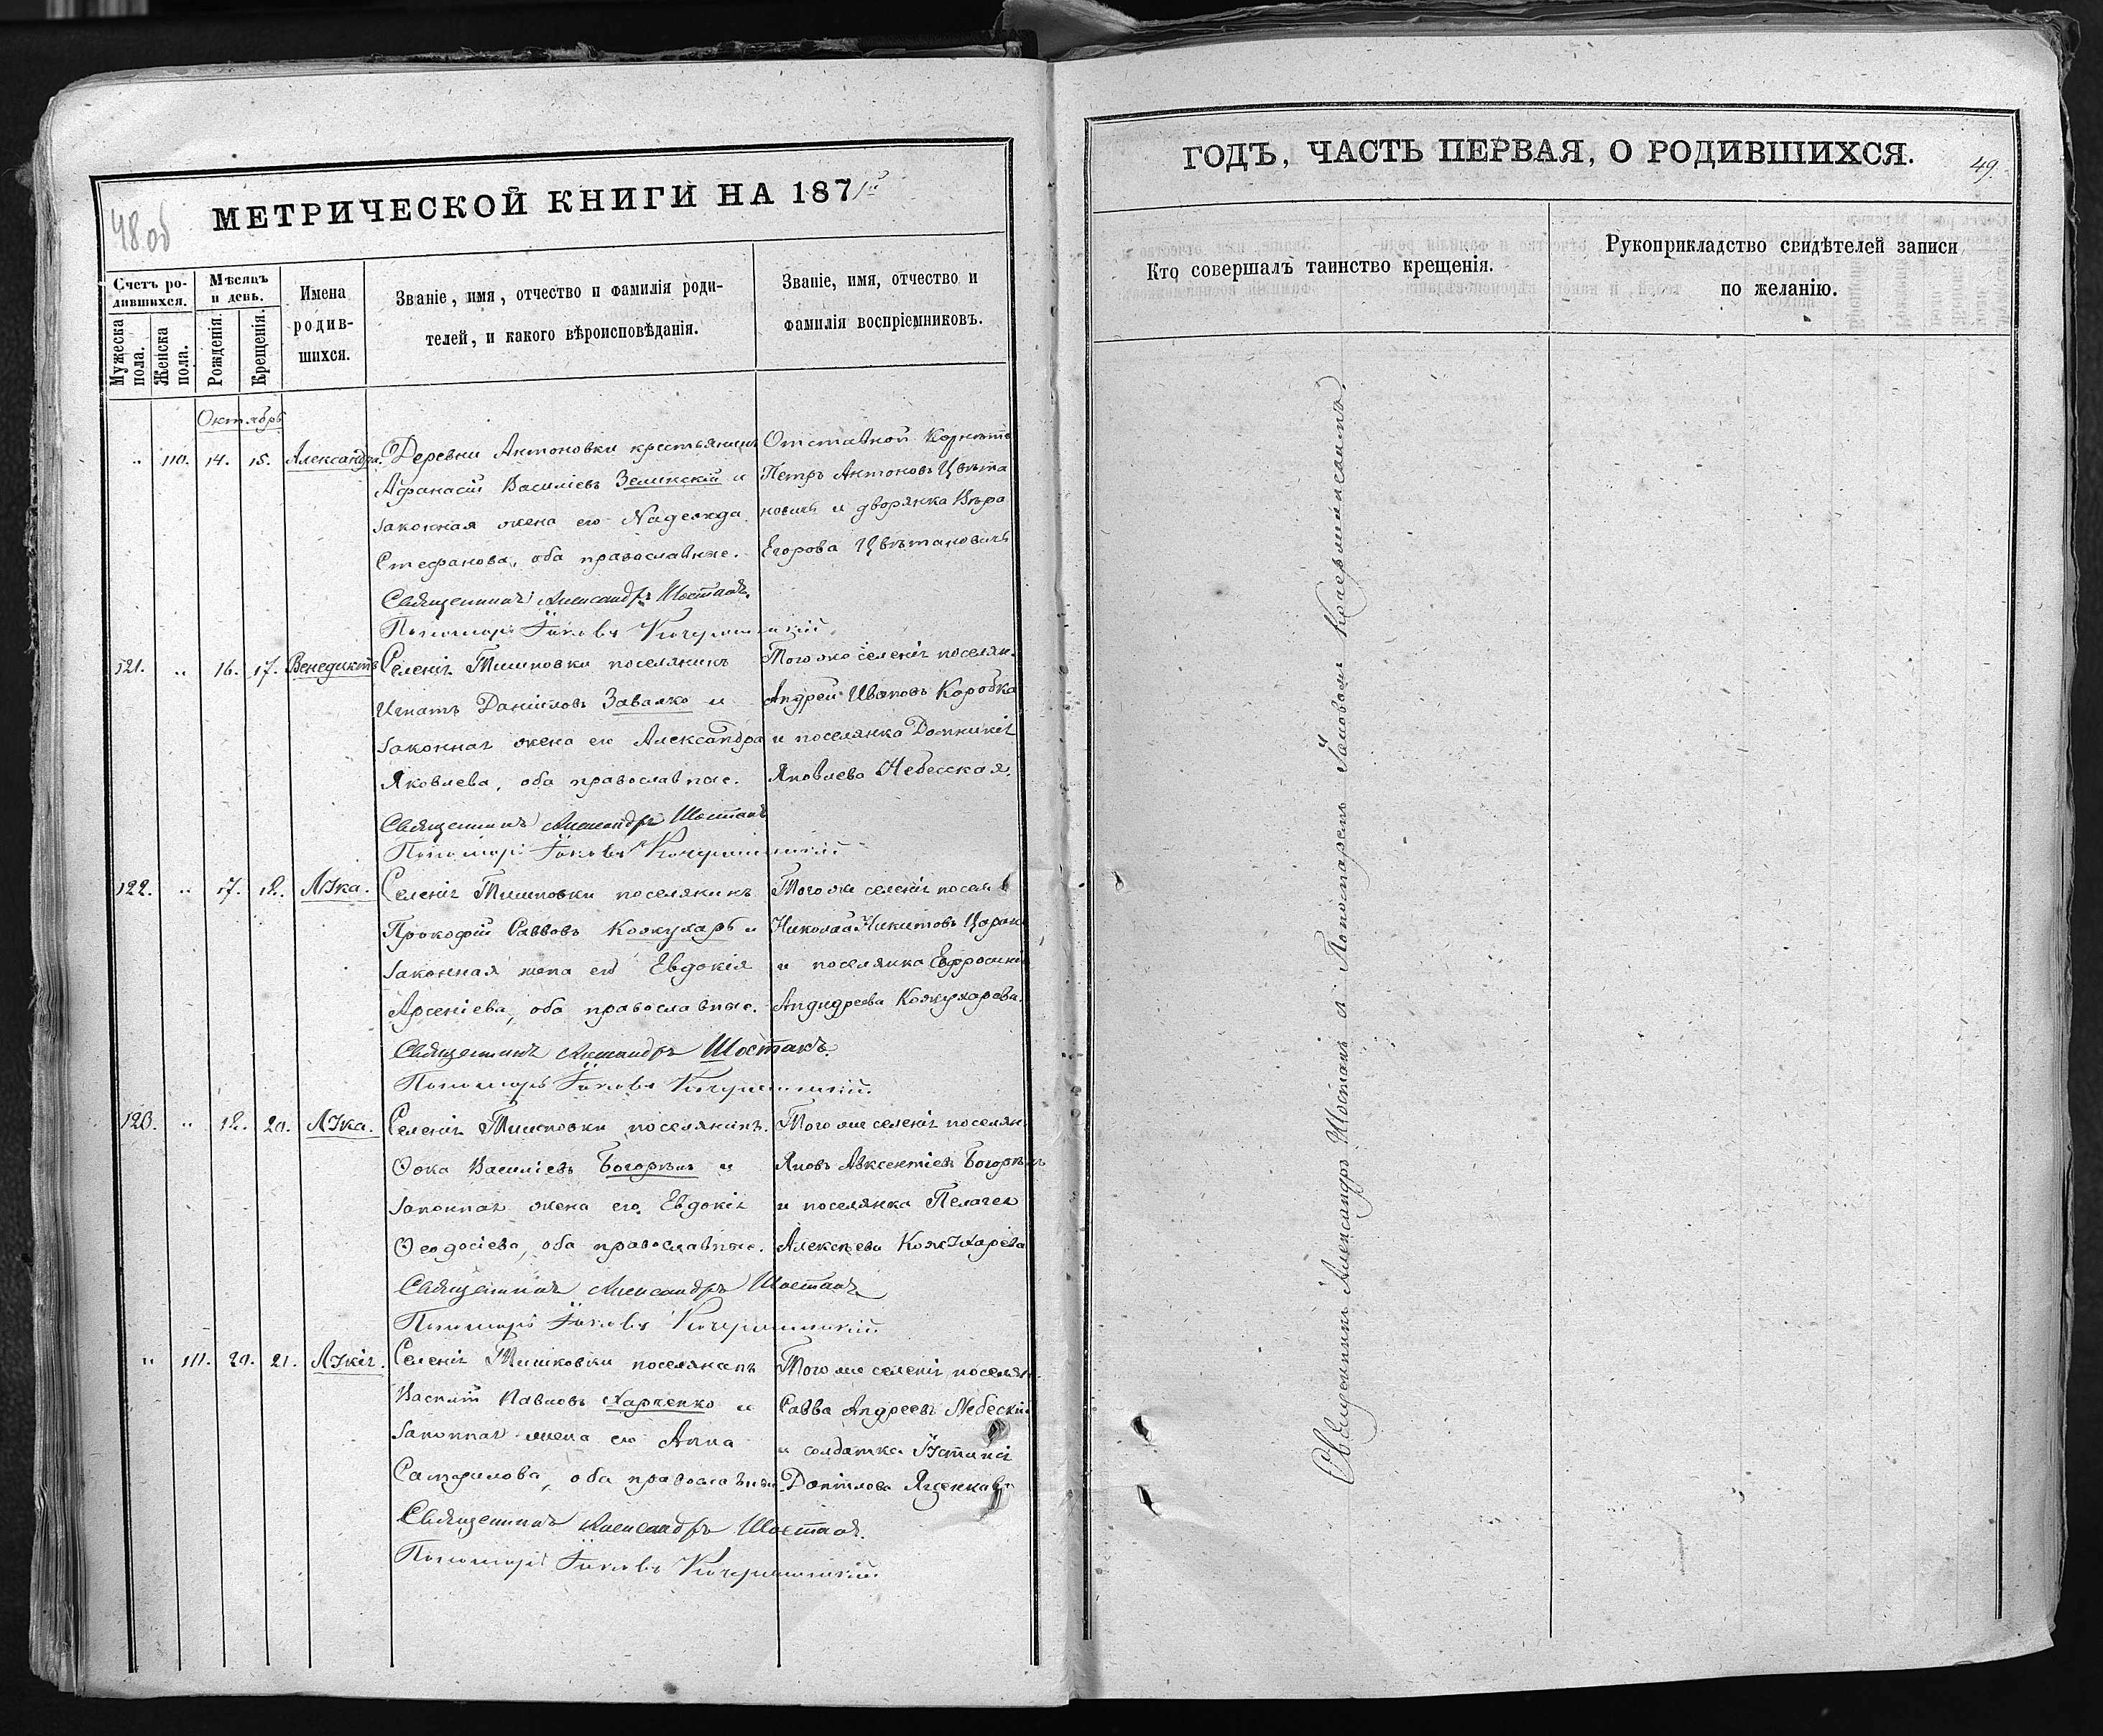 48 об
МЕТРИЧЕСКОЙ КНИГИ НА 1871й
Счетъ ро-
дившихся.
Мужеска
пола.
Женска
пола.
Мѣсяцъ
и день.
Рожденія.
Крещенія.
Имена
родив-
шихся.
Званіе, имя, отчество и фамилія роди-
телей, и какого вѣроисповѣданія.
Званіе, имя, отчество и
фамилія воспріемниковъ.
Октябрь
„ 110. 14. 15. Александра.
Деревни Антоновки крестьянинъ
Афанасій Василіевъ Зелинскій и
законная жена его Надежда
Стефанова, оба православные.
Священникъ Александръ Шостакъ.
Пономарь Іаковъ
Отставной Корнетъ
Петръ Антоновъ Цвѣта
новичъ и дворянка Вѣра
Егорова Цвѣтановичъ
121. „ 16. 17. Венедиктъ
Селенія Тишковки поселянинъ
Игнатъ Даніиловъ Завалко и
законная жена его Александра
Яковлева, оба православные.
Священникъ Александръ Шостакъ
Пономарь Іаковъ
Того же селенія поселян.
Андрей Ивановъ Коробка
и поселянка Домникія
Яковлева Небесская.
122. „ 17. 18. Лука.
Селенія Тишковки поселянинъ
Прокофій Савовъ Кожухарь и
законная жена его Евдокія
Арсеніева, оба православные.
Священникъ Александръ Шостакъ.
Пономарь Іаковъ
Того же селенія посел
Николай Никитовъ Царан
и поселянка Евфросинія
Андреева Кожухарева.
123. „ 18. 20. Лука.
Селенія Тишковки поселянинъ.
Ѳока Василіевъ и
законная жена его Евдокія
Ѳеодосіева, оба православные.
Священникъ Александръ Шостакъ
Пономарь Іаковъ
Того же селенія поселян
Яковъ Авксентіевъ
и поселянка Пелагея
Алексѣева Кожухарева
„ 111. 20. 21. Лукія.
Селенія Тишковки поселянинъ
Василій Павловъ Харченко и
законная жена его Анна
Самуилова, оба православные
Священникъ Александръ Шостакъ.
Пономарь Іаковъ
Того же селенія поселян.
Савва Андреевъ Небескій
и солдатка Іустинія
Даніилова
ГОДЪ, ЧАСТЬ ПЕРВАЯ, О РОДИВШИХСЯ.
49.
Кто совершалъ таинство крещенія.
Рукоприкладство свидѣтелей записи
по желанію.
Священникъ Александръ Шостакъ съ Пономаремъ Іаковомъ